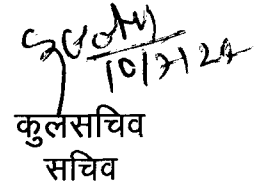 10/7/24
कुलसचिव
सचिव